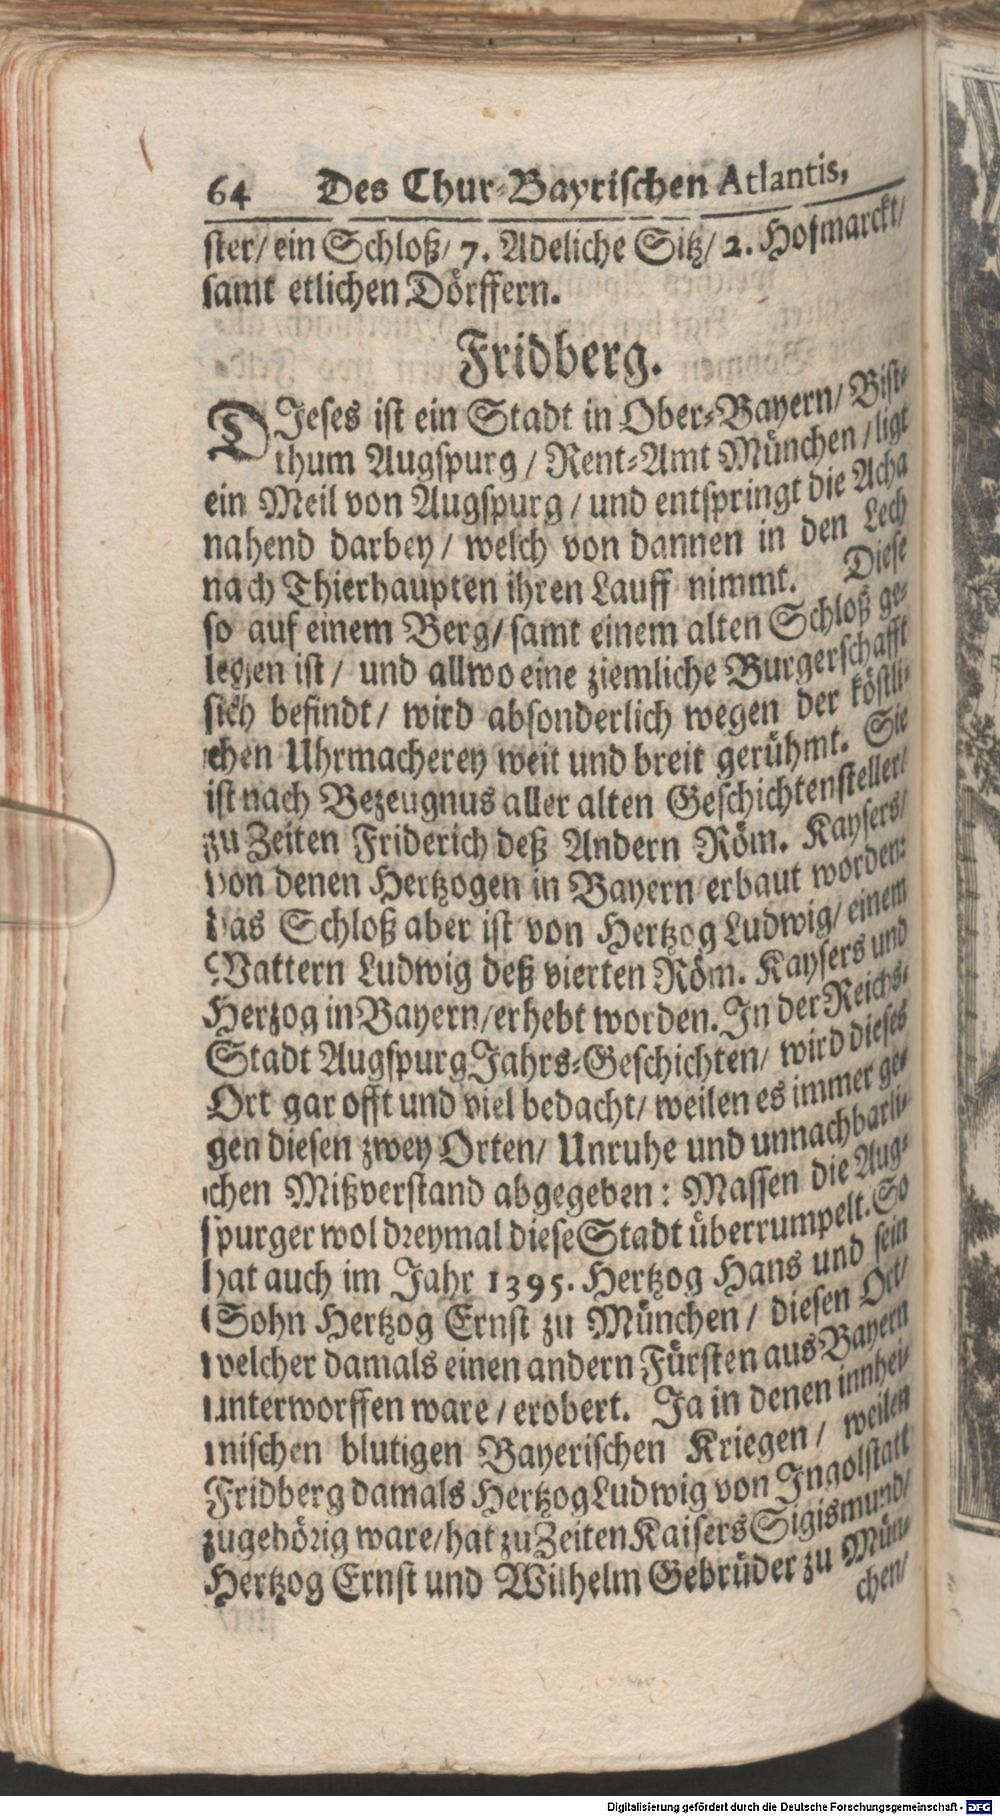 64 Des Chur-Bayrischen Atlantis,
ster/ ein Schloß/ 7. Adeliche Sitz/ 2. Hofmarckt/
samt etlichen Dörffern.
Fridberg.
DIeses ist ein Stadt in Ober-Bayern/ Bist-
thum Augspurg/ Rent-Amt München/ ligt
ein Meil von Augspurg/ und entspringt die Acha
nahend darbey/ welch von dannen in den Lech
nach Thierhaupten ihren Lauff nimmt. Diese
so auf einem Berg/ samt einem alten Schloß ge-
legen ist/ und allwo eine ziemliche Burgerschafft
sich befindt/ wird absonderlich wegen der köstli-
chen Uhrmacherey weit und breit gerühmt. Sie
ist nach Bezeugnus aller alten Geschichtensteller/
zu Zeiten Friderich deß Andern Röm. Kaysers/
von denen Hertzogen in Bayern erbaut worden:
das Schloß aber ist von Hertzog Ludwig/ einem
Vattern Ludwig deß vierten Röm. Kaysers und
Herzog in Bayern/ erhebt worden. In der Reichs-
Stadt Augspurg Jahrs-Geschichten/ wird dieses
Ort gar offt und viel bedacht/ weilen es immer ge-
gen diesen zwey Orten/ Unruhe und unnachbarli-
chen Mißverstand abgegeben: Massen die Aug-
spurger wol dreymal diese Stadt überrumpelt. So
hat auch im Jahr 1395. Hertzog Hans und sein
Sohn Hertzog Ernst zu München/ diesen Ort/
welcher damals einen andern Fürsten aus Bayern
unterworffen ware/ erobert. Ja in denen innhei-
mischen blutigen Bayerischen Kriegen/ weilen
Fridberg damals Hertzog Ludwig von Ingolstatt
zugehörig ware/ hat zu Zeiten Kaisers Sigismund/
Hertzog Ernst und Wilhelm Gebrüder zu Mün-
chen/
Digitalisierung gefördert durch die Deutsche Forschungsgemeinschaft - DFG